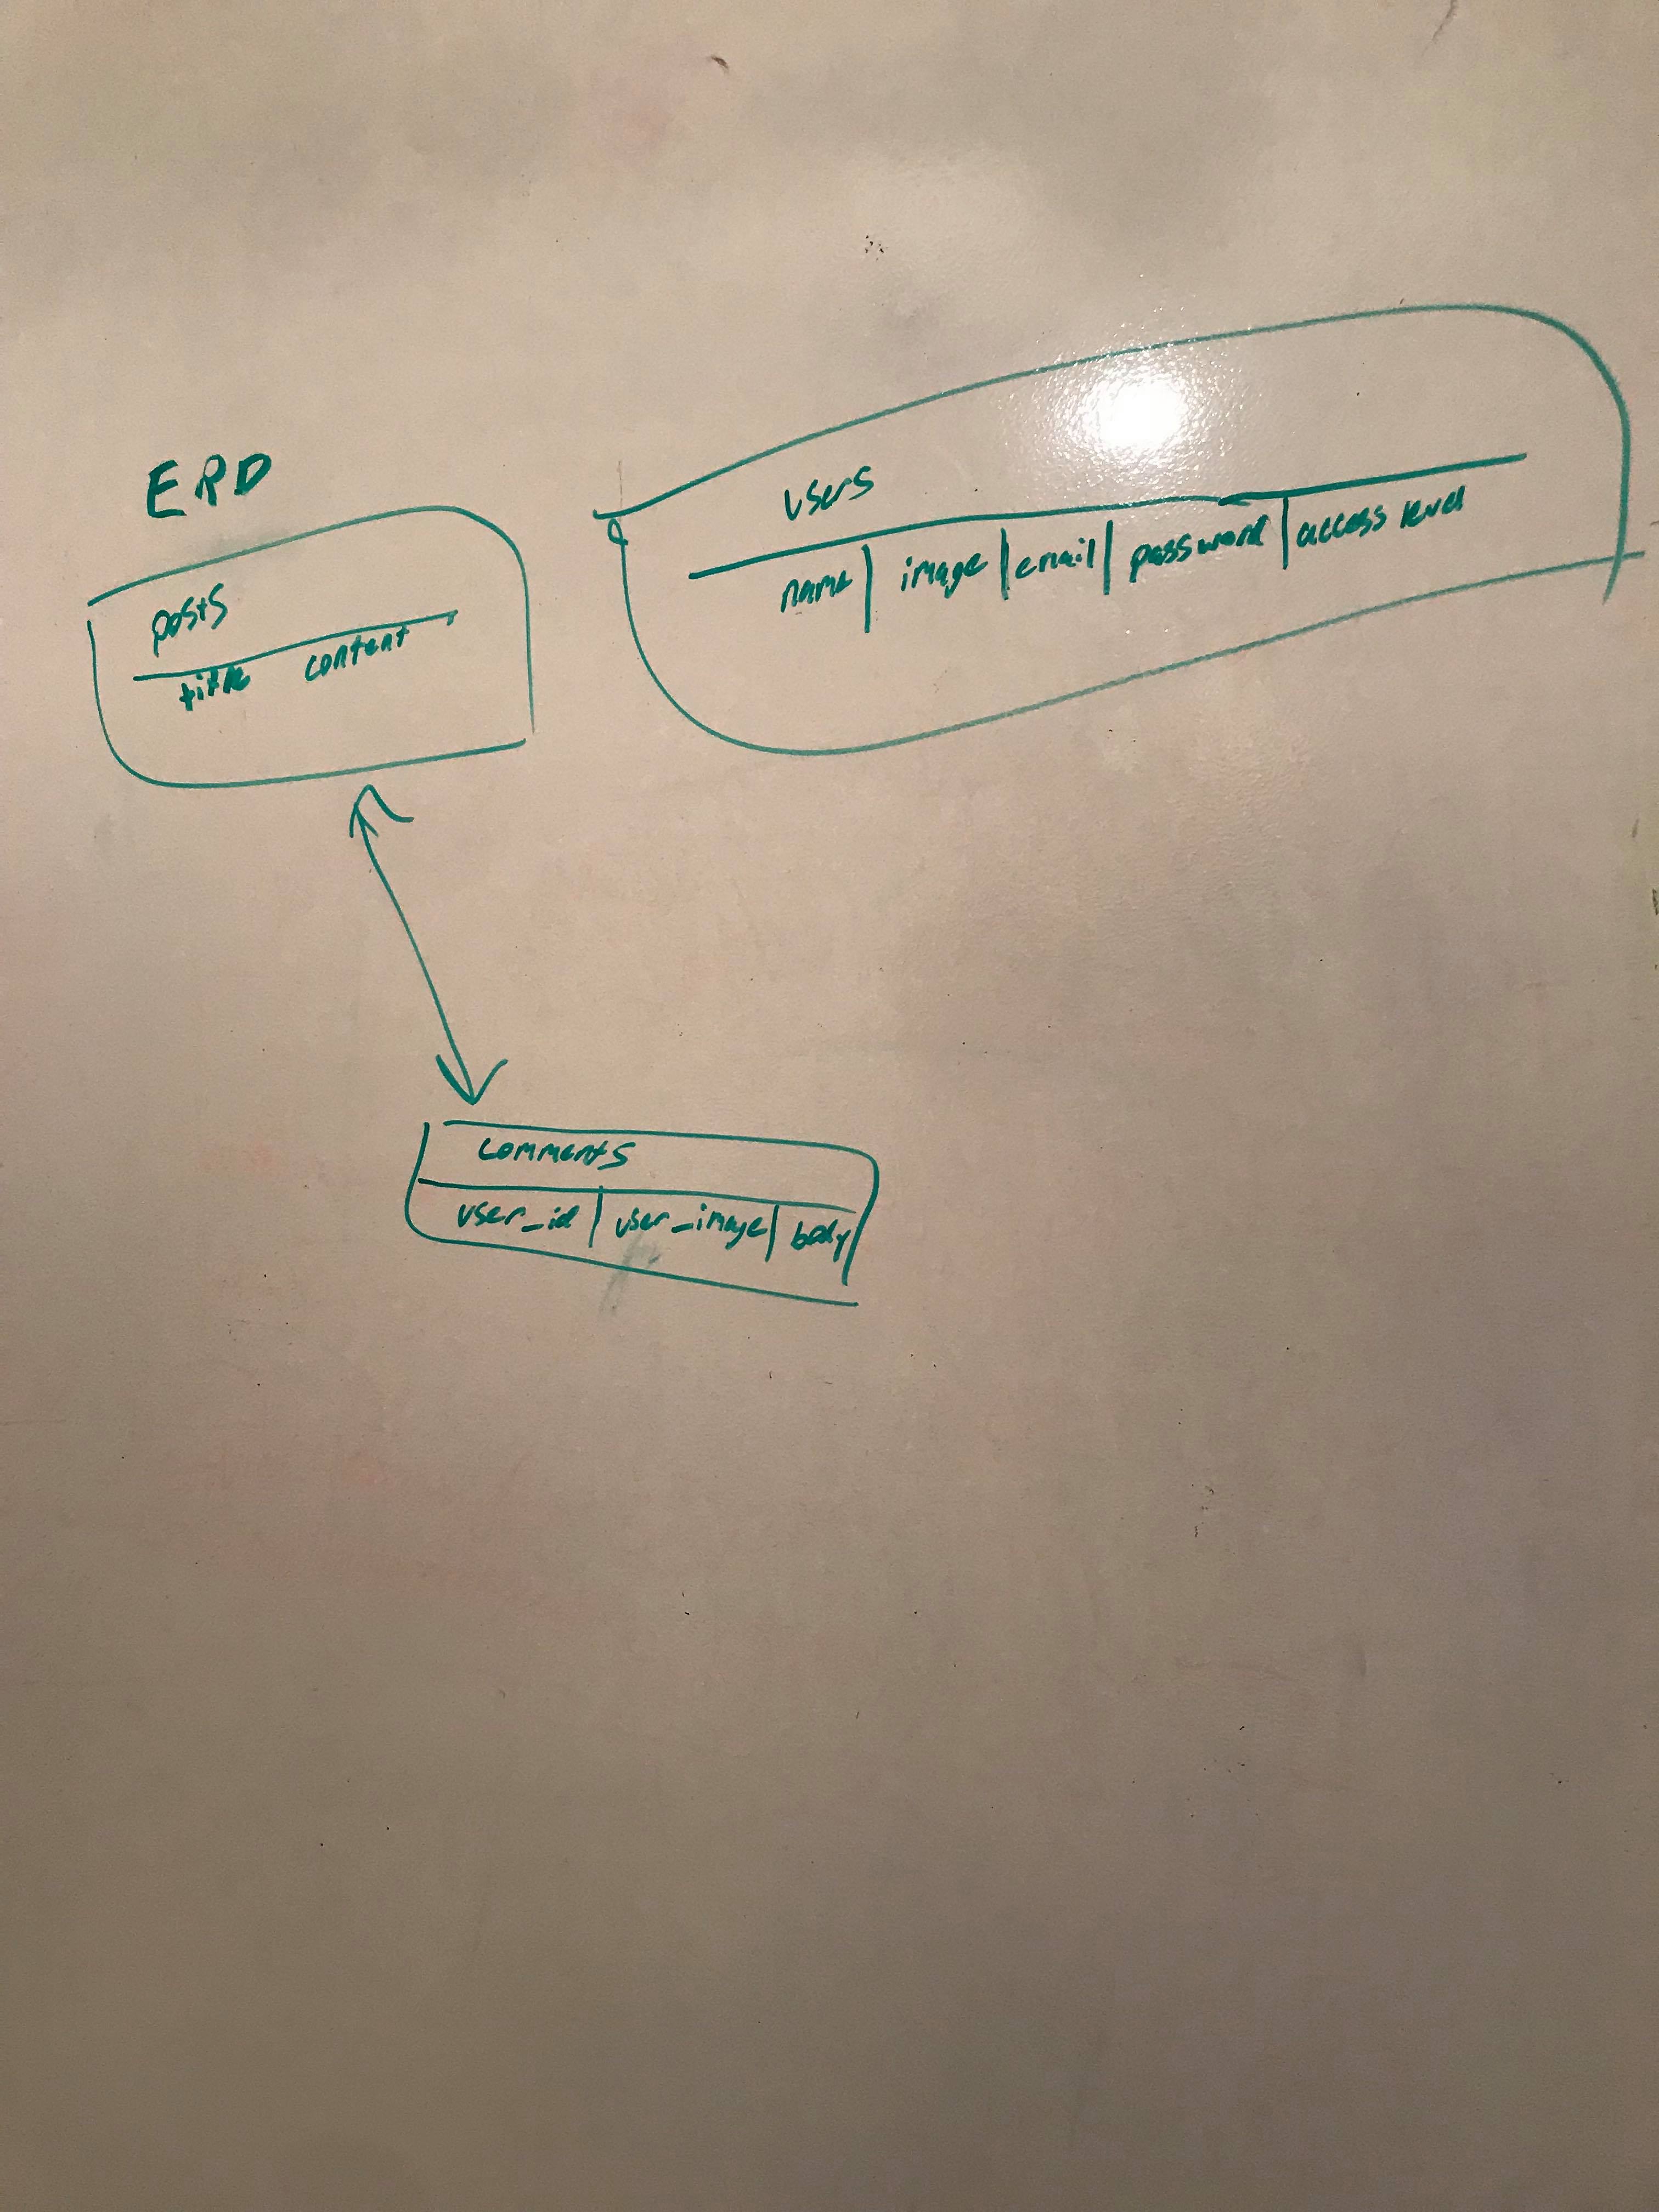 ERD
posts
title content
users
name | image | email | password | access level
comments
user_id | user_image | body